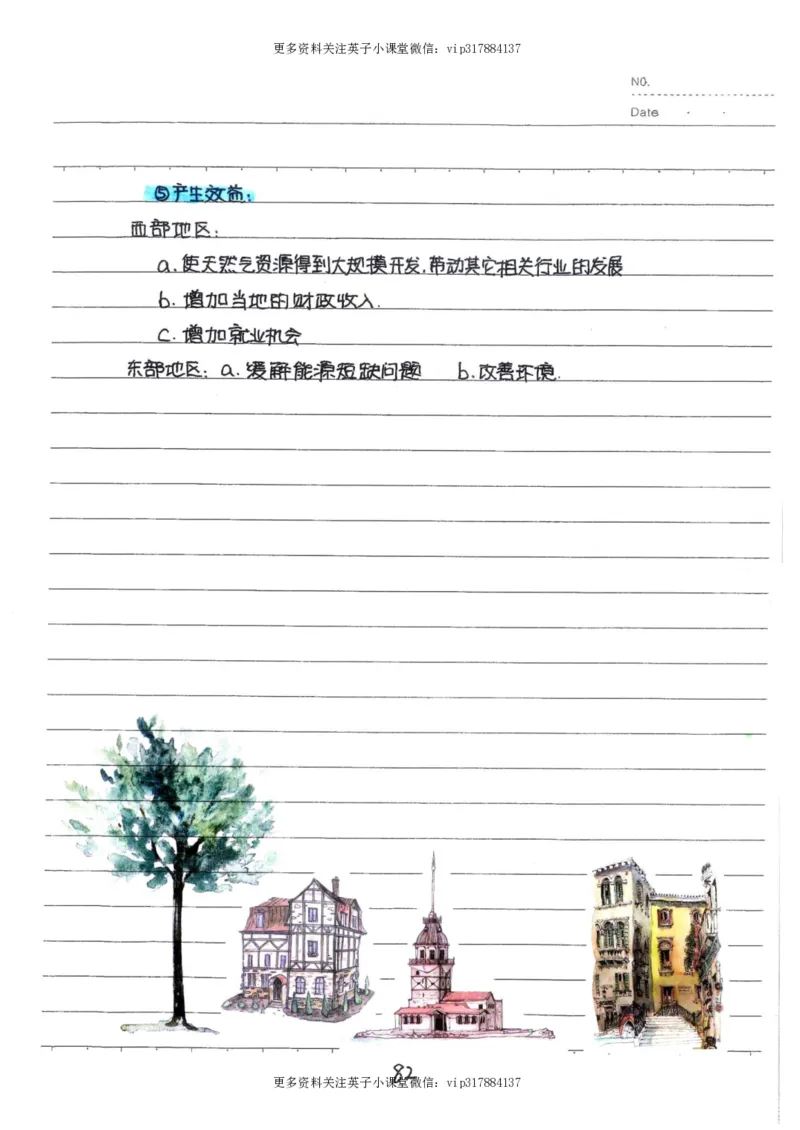 更多资料关注英子小课堂微信：vip317884137
NO.
Date
⑤产生效益：
西部地区：
a.使天然气资源得到大规模开发,带动其它相关行业的发展
b.增加当地的财政收入.
c.增加就业机会
东部地区：a.缓解能源短缺问题 b.改善环境.
82
更多资料关注英子小课堂微信：vip317884137